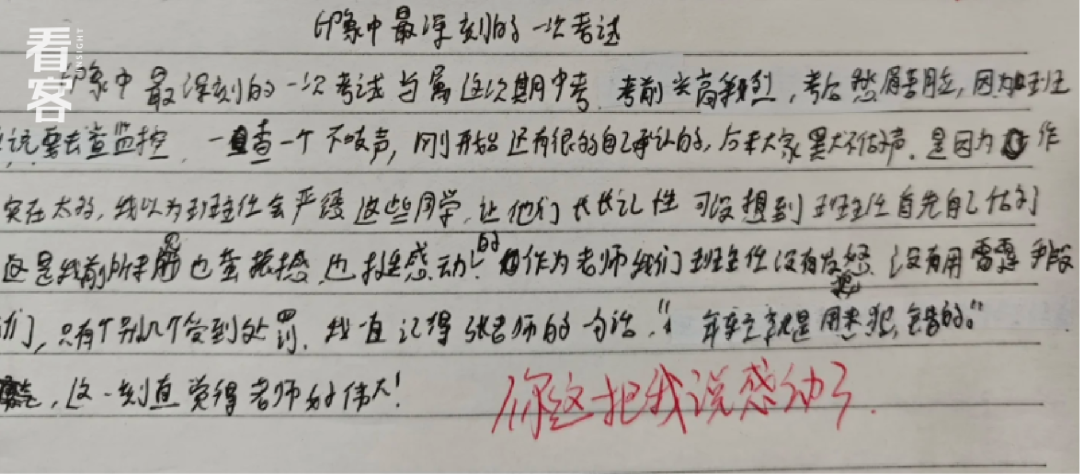 印象中最深刻的一次考试
看客
INSIGHT
印象中最深刻的一次考试当属这次期中考.考前兴高彩烈,考后愁眉苦脸,因为班班
说要去查监控.一查一个不吱声,刚开始还有很的自己承认的,后来大家默不做声.是因为作
实在太多,我以为班主任会严惩这些同学,让他们长长记性可没想到班班主任首先自己
这是我前所未的也蛮振撼.也挺感动!的作为老师我们班主任没有发怒.没有用雷霆手段
们,只有个别几个受到处罚.我一直记得张老师的一句话."年轻就是用来犯错的。"
,这一刻直觉得老师好伟大!
你这把我说感动了.